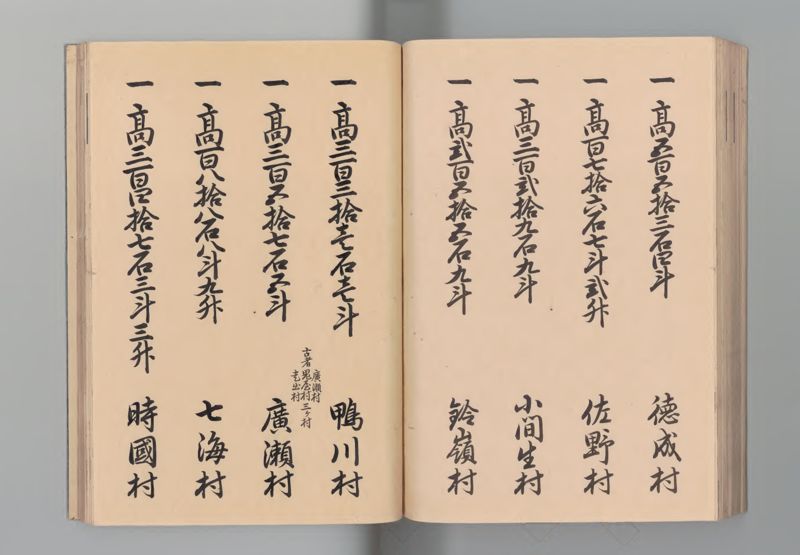 一 高五百五拾三石四斗 徳成村
一 高百七拾六石七斗弐升 佐野村
一 高三百弐拾九石九斗 小間生村
一 高弐百五拾五石九斗 鈴嶽村
一 高三百三拾壱石壱斗 鴨川村
廣瀬村
古者 村三ヶ村
村
一 高三百五拾七石五斗 廣瀬村
一 高百八拾八石八斗九升 七海村
一 高三百四拾七石三斗三升 時國村